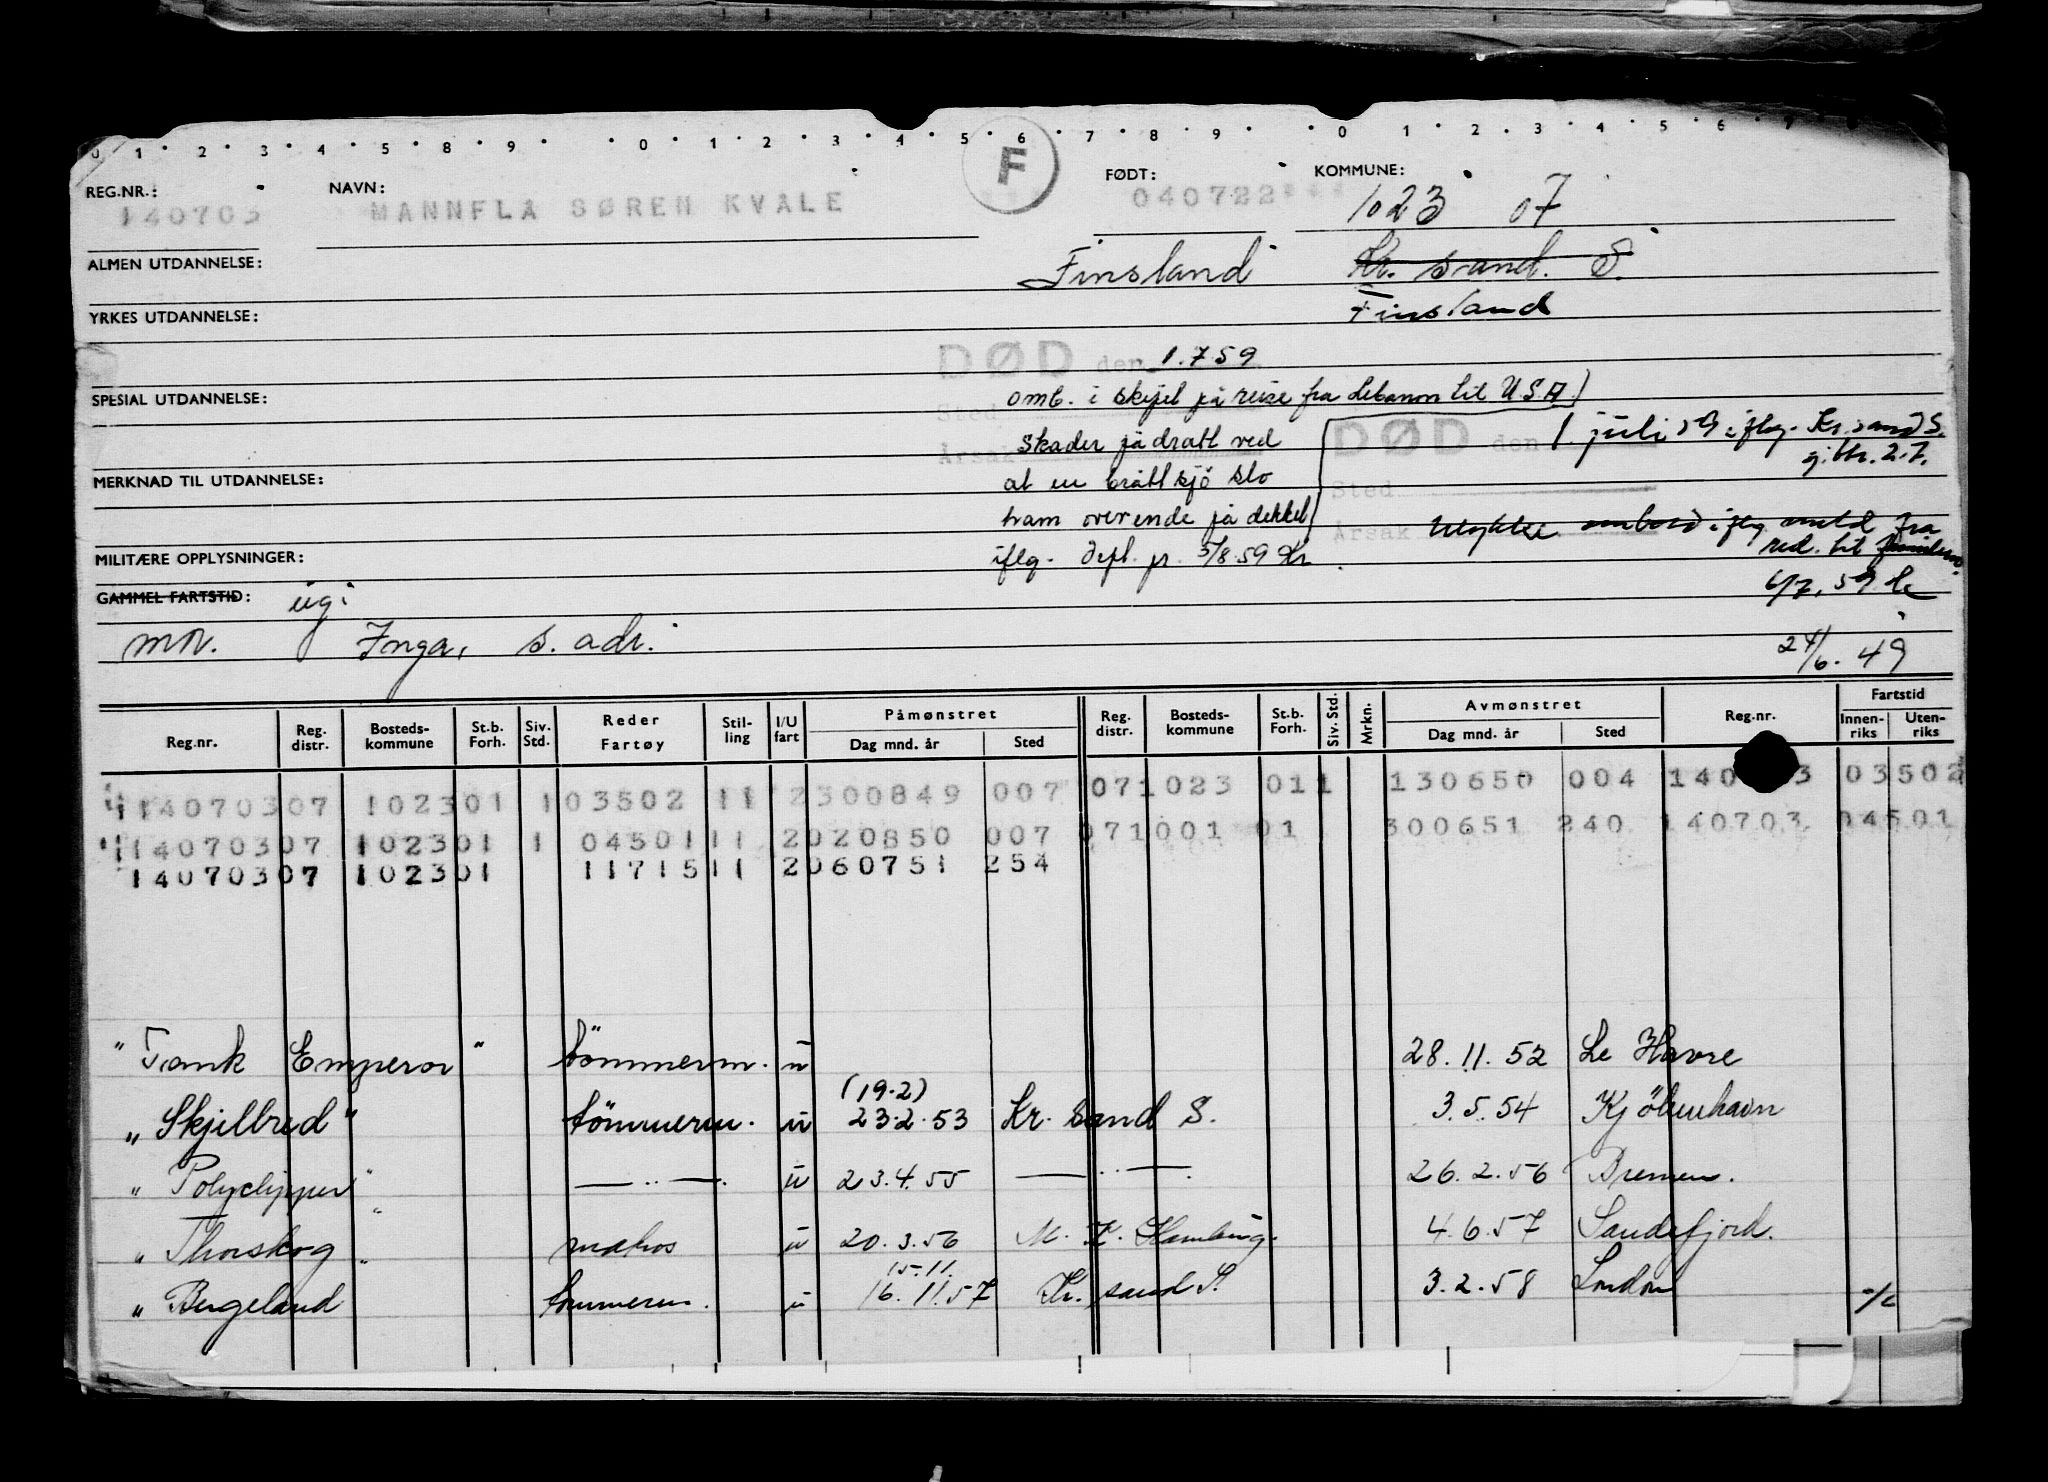 0 1 2 3 4 5 8 9 0 1 2 3 4 5 6 7 8 9 0 1 2 3 4 5 6 9
F
REG.NR.: NAVN: FØDT: KOMMUNE:
140703 MANNFLA SØREN KVALE 040722*** 1023 07
ALMEN UTDANNELSE: Finsland Kr. sand. S.
YRKES UTDANNELSE: Finsland
DØD den 1.7 59
SPESIAL UTDANNELSE: omb. i skipet på reise fra Lebanon til U.S.A.
Sted
skader på dratt ved DØD den 1. juli 59 iflg. Kr.sand S.
Årsak
avt. 2.7.
MERKNAD TIL UTDANNELSE: at en brått sjö slo Sted
ham overende på dekket Årsak Ulykke ombord iflg meld fra
red. til familien.
MILITÆRE OPPLYSNINGER: iflg. Dept. pr. 5/8.59 Kr.
GAMMEL FARTSTID: ugi 6/7.59
mor. Inga, s. adr. 24/6. 49
Reg.nr. Reg. distr. Bosteds-kommune St.b. Forh. Siv. Std. Reder Fartøy Stil-ling I/U fart Påmønstret Dag mnd. år Sted Reg. distr. Bosteds-kommune St.b. Forh. Siv. Std. Mrkn. Avmønstret Dag mnd. år Sted Reg.nr. Fartstid Innen-riks Uten-riks
14070307 102301 103502 11 2300849 007 071023 011 130650 004 140 3 03502
14070307 102301 1 04501 11 2020850 007 071001 01 300651 240 140703 04501
14070307 102301 11715 11 2060751 254
" Tank Emperor " tömmerm. u 28.11.52 Le Havre
(19.2)
„ Skjelbred " tömmerm. u 23.2.53 Kr. sand S. 3.5.54 Kjöbenhavn
" Polyclipper " — " — u 23.4.55 — " — 26.2.56 Bremen.
" Thorskog " matros u 20.3.56 M. K. Hamburg. 4.6.57 Sandefjord.
15.11.
" Bergeland tömmerm. u 16.11.57 Kr. sand S. 3.2.58 London